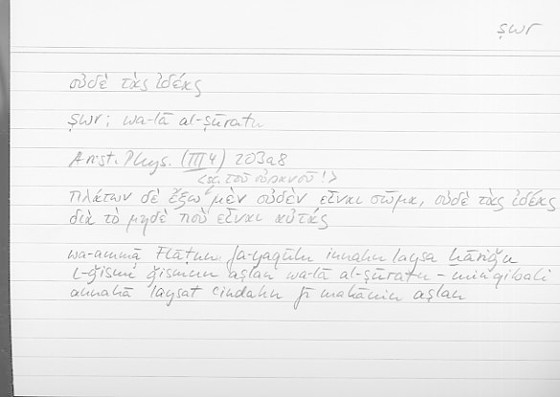 ṣwr
οὐδὲ τὰς ἰδέας
ṣwr; wa-lā al-ṣūratu
Arist. Phys. (III 4) 203a8
<sc. τοῦ οὐρανοῦ !>
Πλάτων δὲ ἔξω μὲν οὐδὲν εἶναι σῶμα, οὐδὲ τὰς ἰδέας
διὰ τὸ μηδὲ ποὺ εἶναι αὐτάς
wa-ammā Flāṭun fa-yaqūlu innahu laysa ḫāriǧu
l-ǧismi ǧismun aṣlan wa-lā al-ṣūratu – min qibali
annahā laysat ʿindahu fī makānin aṣlan